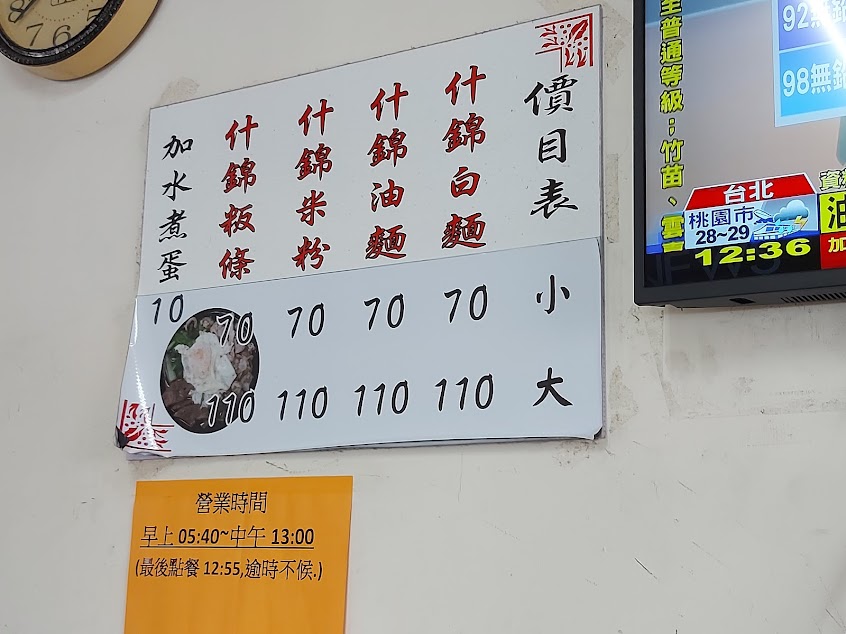 價目表
小
大
什錦白麵
70
110
什錦油麵
70
110
什錦米粉
70
110
什錦粄條
70
110
加水煮蛋
10
營業時間
早上 05:40~中午 13:00
(最後點餐 12:55,逾時不候.)
至普通等級；竹苗、雲
92無鉛
98無鉛
台北
桃園市
28~29
12:36
油
加